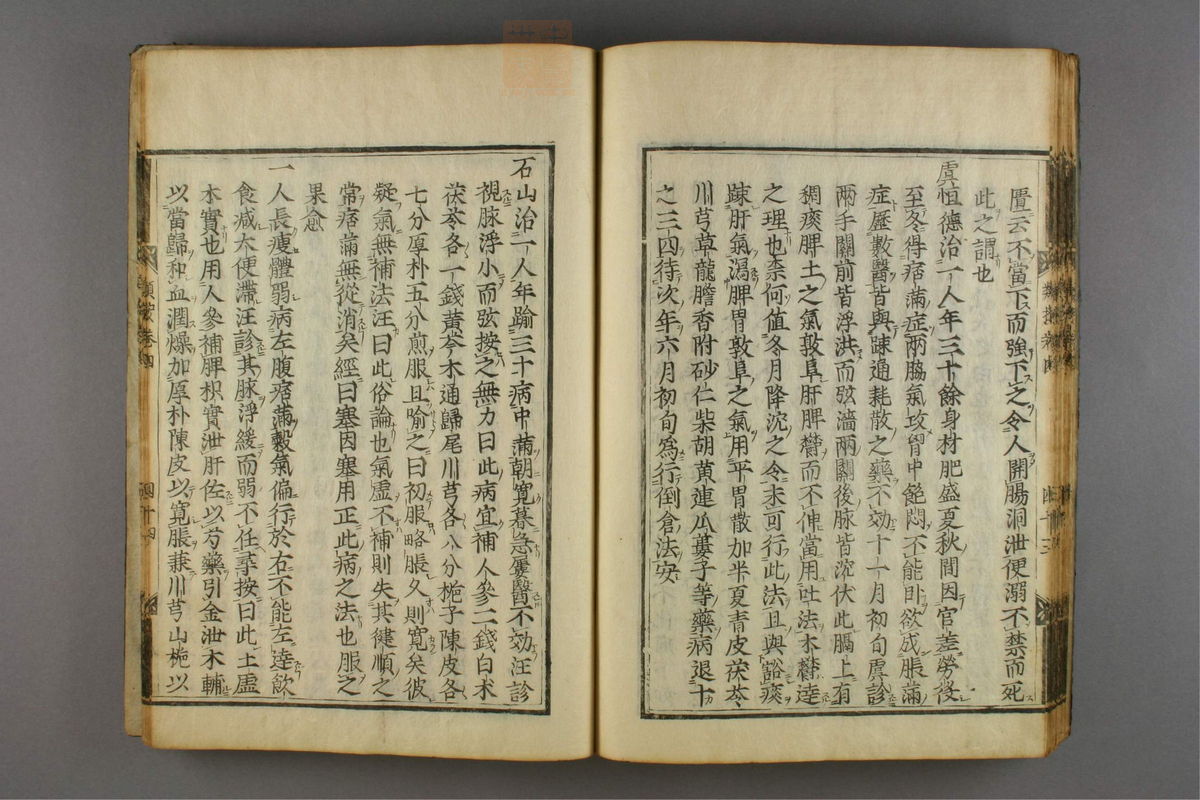 靨云不當下而強下之令人開腸洞泄便溺不禁而死
此之謂也
虞恒德治一人年三十餘身材肥盛夏秋間因官差勞役
至冬得痞滿症兩脇氣攻胷中飽悶不能卧欲成脹滿
症歷數醫皆與踈通耗散之藥不効十一月初旬虞診
兩手關前皆浮洪而弦濇兩關後脉皆沉伏此膈上有
稠痰脾土之氣敦阜肝脾欝而不伸當用吐法木欝達
之理也柰何值冬月降沉之令未可行此法且與豁痰
踈肝氣瀉脾胃敦阜之氣用平胃散加半夏青皮茯苓
川芎草龍膽香附砂仁柴胡黃連瓜蔞子等藥病退十
之三四待次年六月初旬爲行倒倉法安
石山治一人年踰三十病中滿朝寬暮急屢醫不効汪診
視脉浮小而弦按之無力曰此病宜補人參二錢白术
茯苓各一錢黃芩木通歸尾川芎各八分梔子陳皮各
七分厚朴五分煎服且喻之曰初服略脹久則寬矣彼
疑氣無補法汪曰此俗論也氣虛不補則失其健順之
常痞滿無從消矣經曰塞因塞用正此病之法也服之
果愈
一人長瘦體弱病左腹痞滿穀氣偏行於右不能左達飲
食減大便滯汪診其脉浮緩而弱不任尋按曰此土虛
木實也用人參補脾枳實泄肝佐以芍藥引金泄木輔
以當歸和血潤燥加厚朴陳皮以寬脹兼川芎山梔以
類按卷四
四十四